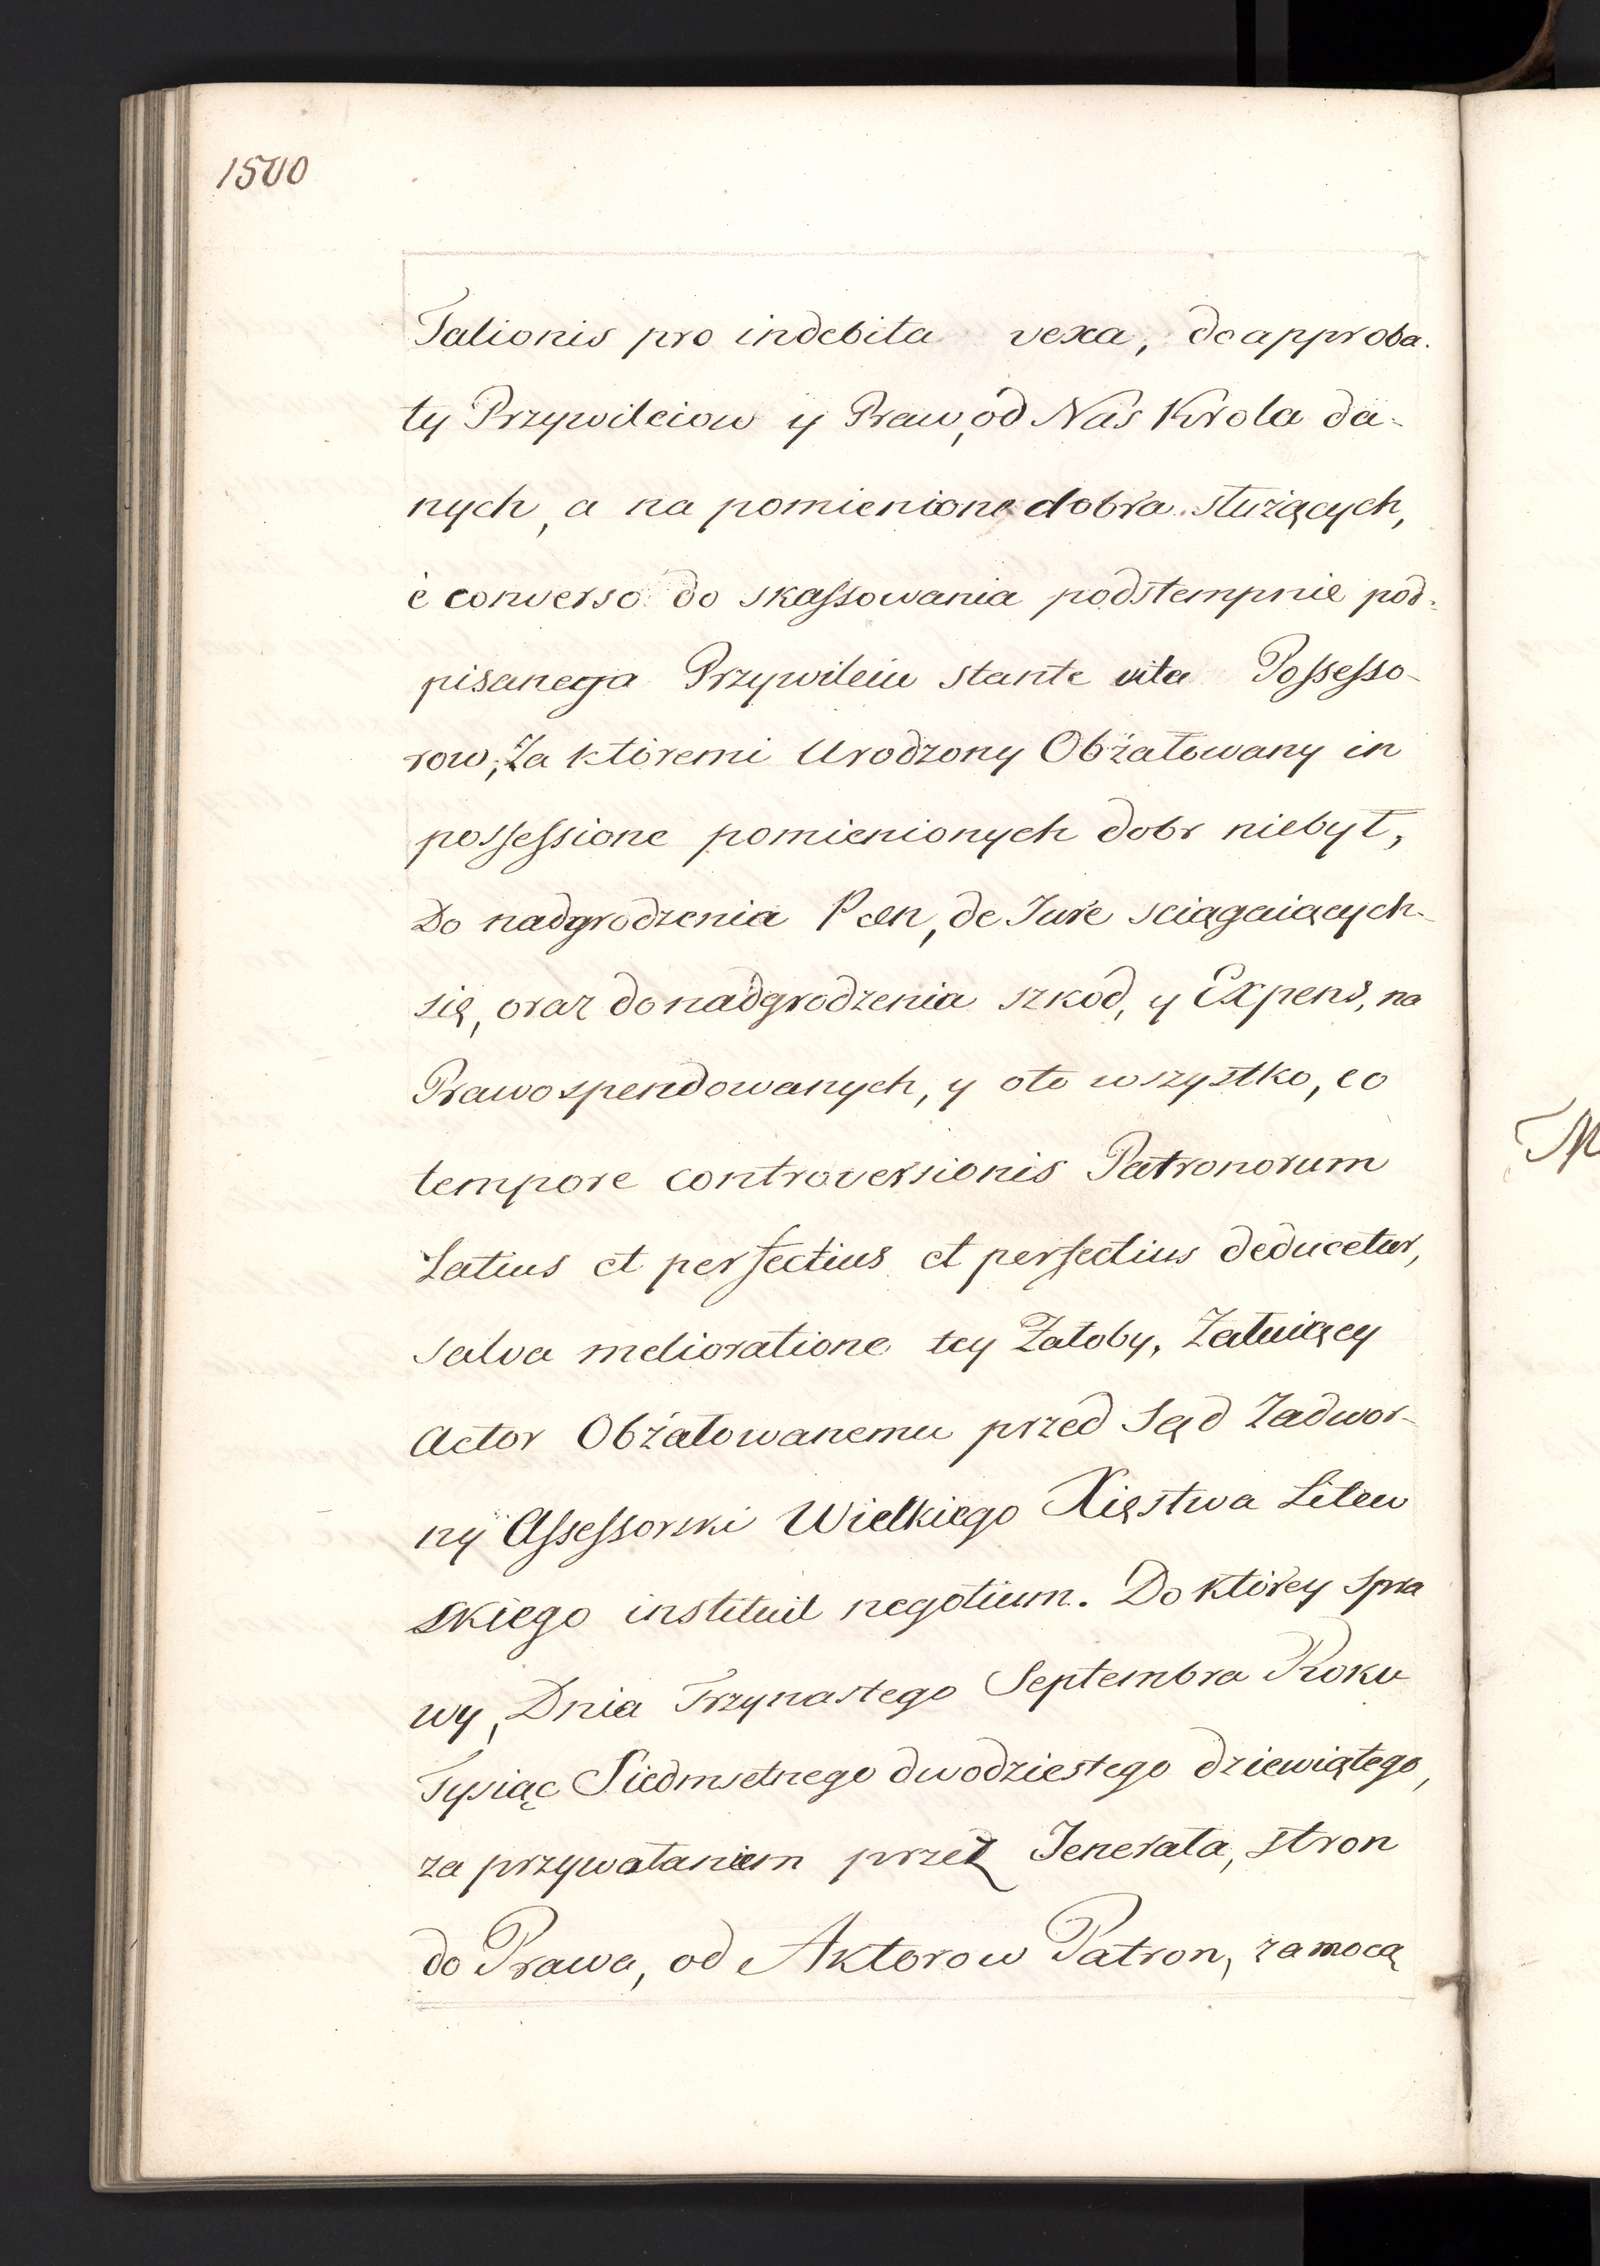 1500
Talionis pro indebita vexa, do approba-
ty Przywileiow y Praw, od Nas Krola da-
nych, a na pomienione dobra służących,
è converso do skassowania podstempnie pod-
pisanego Przywileiu stante vita Possesso-
row, Za ktòremi Urodzony Obżałowany in
possessione pomienionych dobr niebył,
Do nadgrodzenia Pæn, de Jure sciągaiących-
się, oraz do nadgrodzenia szkod, y Expens, na
Prawo spendowanych, y oto wszystko, co
tempore controversionis Patronorum
Latius et perfectius et perfectius deducetur,
salva melioratione tey Załoby, Załuiący
Actor Obżałowanemu przed Sąd Zadwor-
ny Assessorski Wielkiego Xięstwa Litew
skiego instituil negotium. Do ktòrey spra
wy, Dnia Trzynastego Septembra Roku
Tysiąc Siedmsetnego dwodziestego dziewiątego,
za przywołaniem przez Jenerała, stron
do Prawa, od Aktorow Patron, za mocą